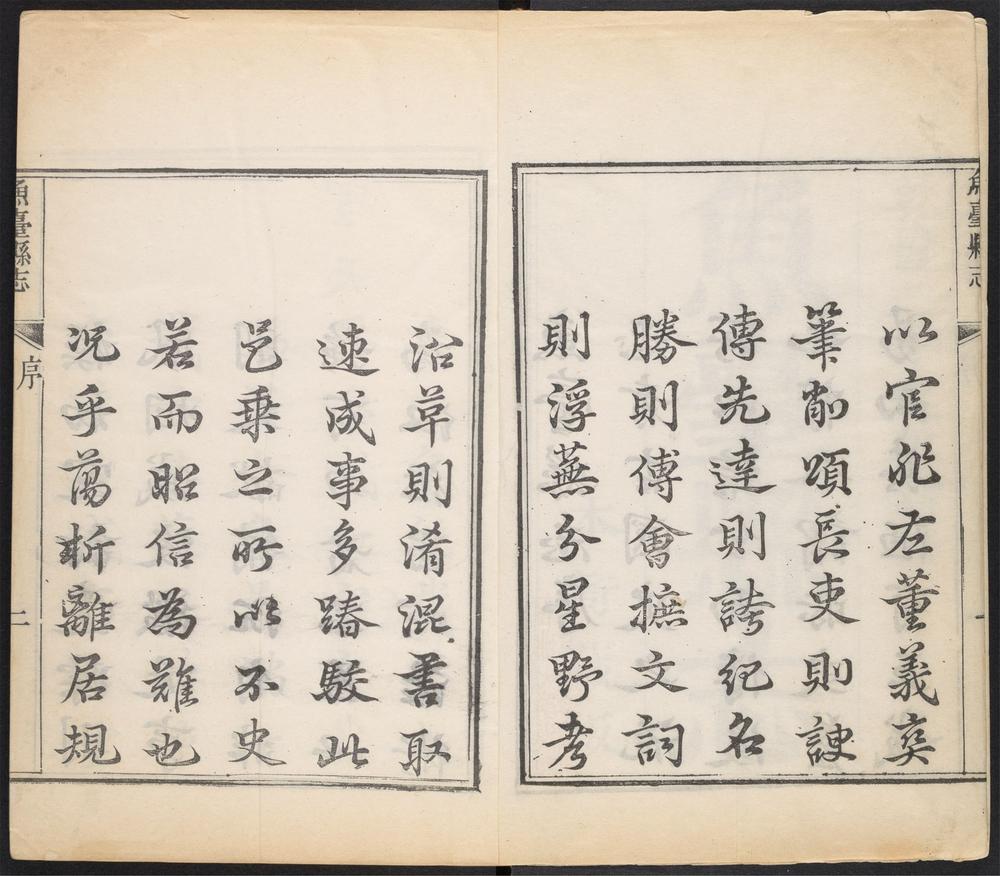 魚臺縣志
以官非左董義奕
筆削頌長吏則諛
傳先達則誇紀名
勝則傅會摭文詞
則浮蕪分星野考
沿革則淆混書取
速成事多踳駁此
邑乗之所以不史
若而昭信為難也
况乎蕩析離居規
魚臺縣志
序
二